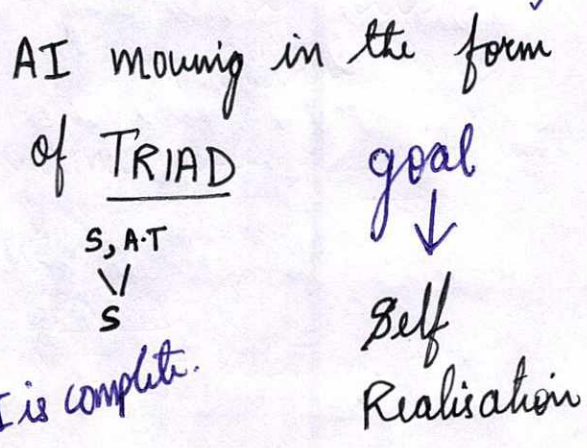 AI moving in the form
of TRIAD
goal
S, A.T
S
Self
Realisation
I is complete.